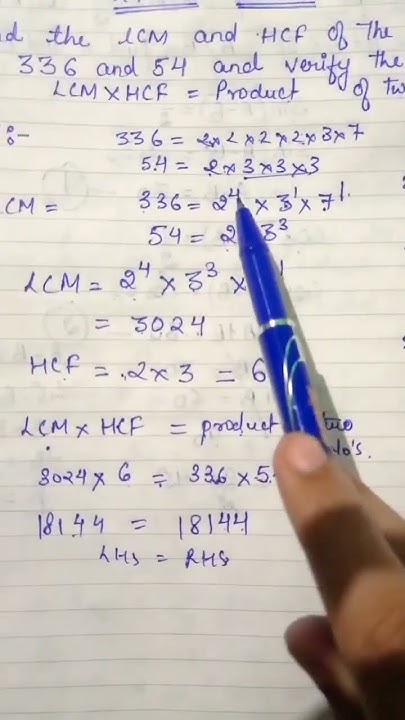 the LCM and HCF of the
336 and 54 and verify the
LCM×HCF = Product of two
:- 336 = 2×2×2×2×3×7
54 = 2×3×3×3
CM = 336 = 2⁴ × 3¹ × 7¹
54 = 2 3³
LCM = 2⁴ × 3³ ×
= 3024
HCF = 2×3 = 6
LCM × HCF = product two
No's.
3024 × 6 = 336 × 5
18144 = 18144
LHS = RHS